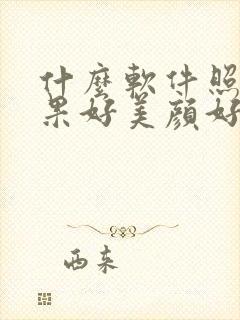 什麼軟件照
果好美顔好
西来